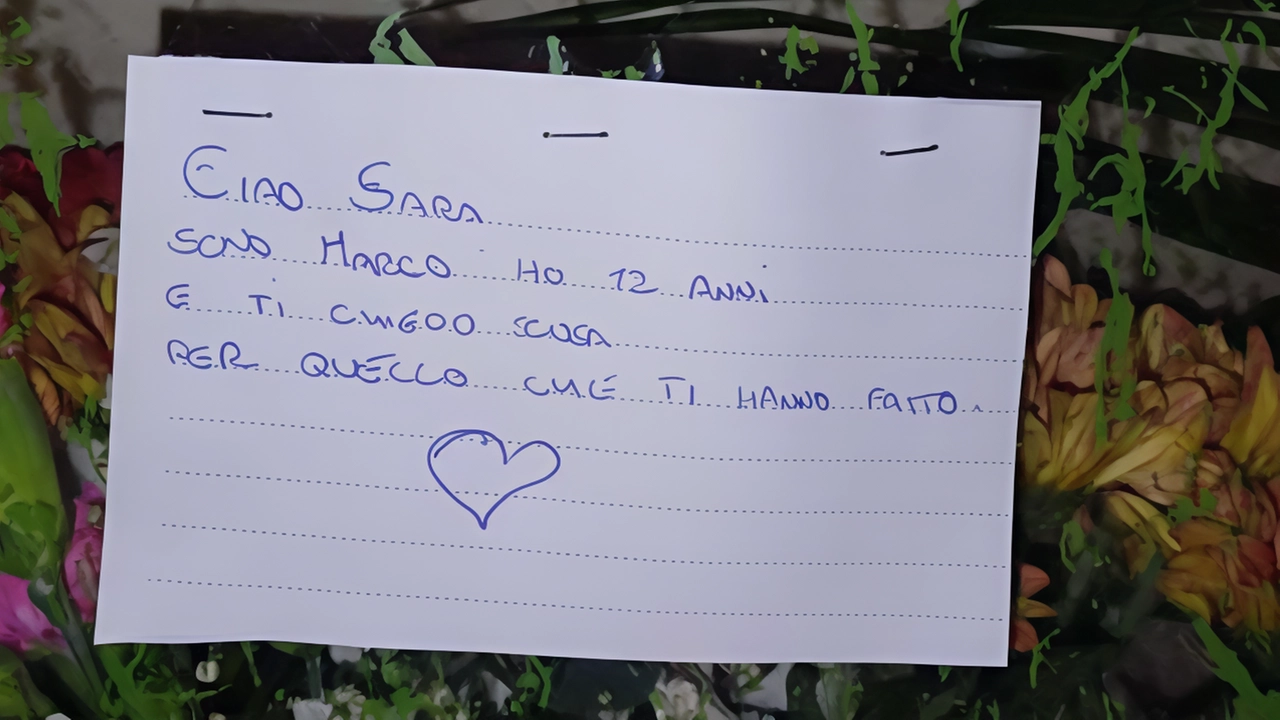 CIAO SARA
SONO MARCO HO 12 ANNI
E TI CHIEDO SCUSA
PER QUELLO CHE TI HANNO FATTO.